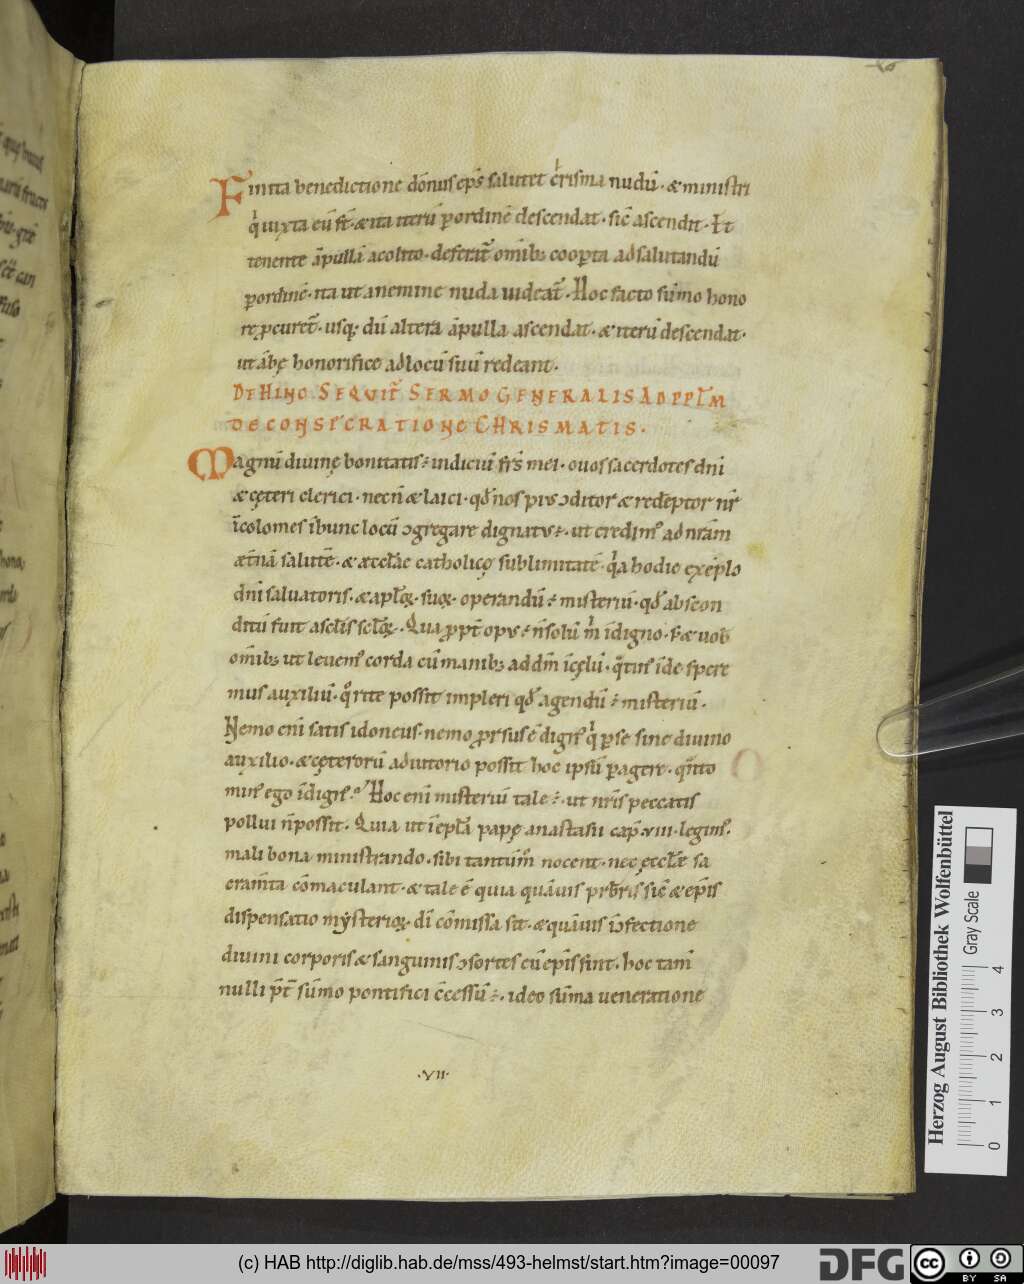 Finita benedictione dōnus ep̄s salutet c̄risma nudū · & ministri
q iuxta eū st̄ · & ita iterū ꝑ ordinē descendat · sic̄ ascendit · Et
tenente āpullā acolito · deferat̄ om̄ib; cooꝑta ad salutandū
ꝑ ordinē · ita ut a nemine nuda uideat̄ · Hoc facto sūmo hono
re ꝓcuret̄ · usq; dū altera āpulla ascendat · & iterū descendat ·
ut ābę honorifice ad locū suū redeant ·
DEHINC SEQVIT̄ SERMO GENERALIS AD PPL̄M
DE CONSECRATIONE CHRISMATIS ·
Magnū diuinę bonitatis ÷ indiciū fr̄s mei · o uos sacerdotes dn̄i
& cęteri clerici · necn̄ & laici · qđ nos pius ɔditor & redēptor nr̄
īcolomes ī hunc locū ɔgregare dignatus ÷ · ut credim' ad nr̄am
æt̄nā salutē · & æccl̄ae catholicę sublimitatē · qa hodie exēplo
dn̄i saluatoris · & apl̄oꝝ · suoꝝ · operandū ÷ misteriū · qđ abscon
ditū fuit a sc̄lis scl̄oꝝ · Qua ꝓpt̄ opus ÷ n̄ solū m ī digno · s; & uob
om̄ib; ut leuem' corda cū manib; ad dm̄ ī cęlū · q̄tin' īde spere
mus auxiliū · qo rite possit impleri qđ agendū ÷ misteriū ·
Nemo eni satis idoneus · nemo ꝓrsus ē dign' q ꝑ se sine diuino
auxilio · & cęterorū adiutorio possit hoc ipsū ꝑagere · q̄nto
min' ego īdign' · Hoc eni misteriū tale ÷ · ut nr̄is peccatis
pollui n̄ possit · Quia ut ī epl̄a papę anastasii cap̄ · viii · legim' ·
mali bona ministrando · sibi tantūm nocent · nec ęccl̄æ sa
cram̄ta cōmaculant · & tale ē quia quāuis prb̄ris sic̄ & ep̄is
dispensatio mẏsterioꝝ · dī cōmissa sit · & quāuis ī ɔfectione
diuini corporis & sanguinis ɔsortes cū ep̄is sint · hoc tam̄
nulli pt̄ sūmo pontifici c̄cessū ÷ · ideo sūma ueneratione
· VII ·
Herzog August Bibliothek Wolfenbüttel
Gray Scale
0 1 2 3 4
(c) HAB http://diglib.hab.de/mss/493-helmst/start.htm?image=00097
DFG
cc BY SA